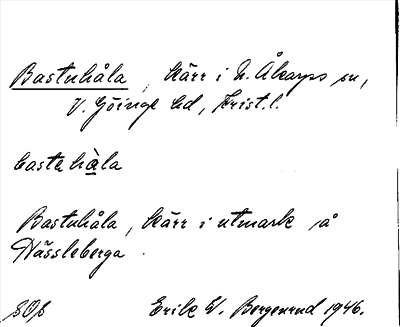 Bastuhåla, Kärr i N. Åkarps sn,
V. Göinge hd, Krist. l.
bastehåla
Bastuhåla, Kärr i utmark å
Hässleberga.
SOS Erik W. Bergenrud 1946.